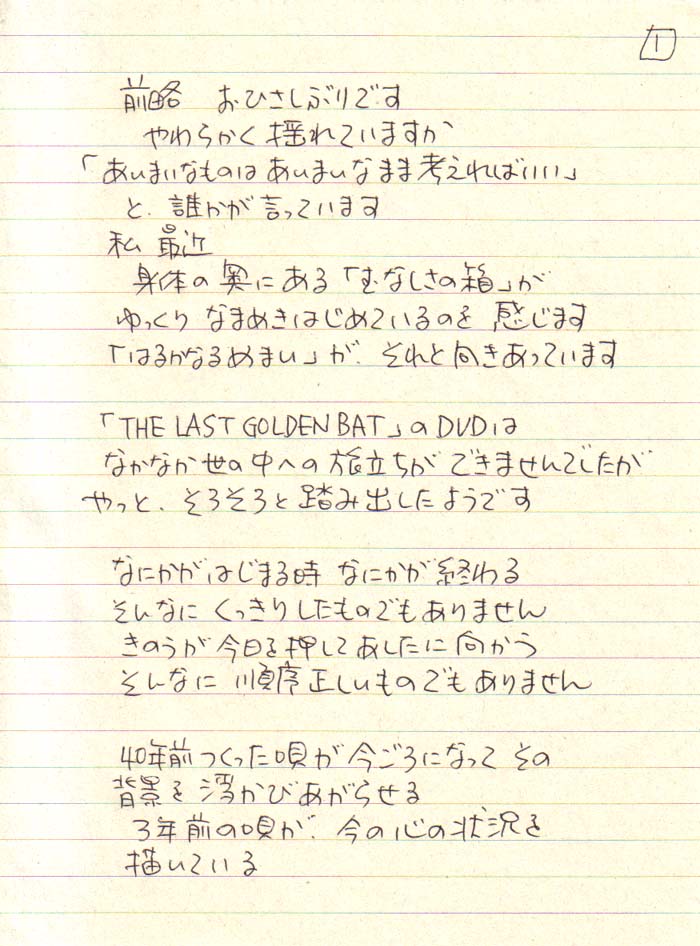 1
前略 おひさしぶりです
やわらかく揺れていますか
「あいまいなものは あいまいなまま考えればいい」
と、誰かが言っています
私 最近
身体の奥にある「むなしさの箱」が
ゆっくり なまめきはじめているのを 感じます
「はるかなるめまい」が、それと向きあっています
「THE LAST GOLDEN BAT」のDVDは
なかなか世の中への旅立ちが できませんでしたが
やっと、そろそろと踏み出したようです
なにかがはじまる時 なにかが終わる
そんなに くっきりしたものでもありません
きのうが今日を押してあしたに向かう
そんなに 順序正しいものでもありません
40年前つくった唄が 今ごろになって その
背景を浮かびあがらせる
3年前の唄が、今の心の状況を
描いている